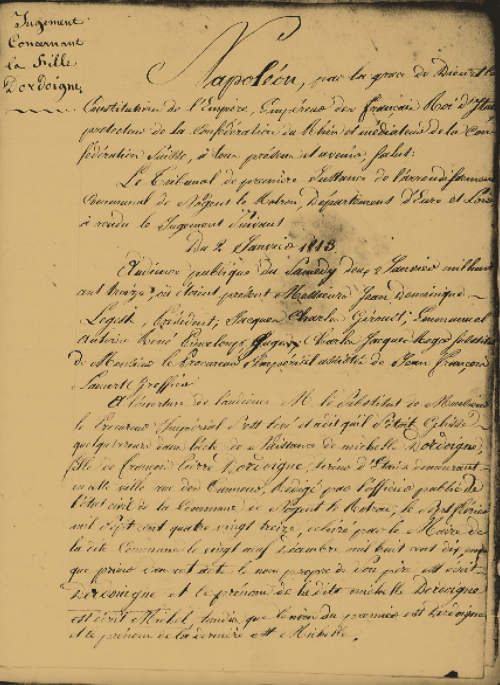 Jugement
Concernant
la fille
Dordoigne
Napoléon, par la grace de Dieu et les
Constitutions de l'Empire, Empereur des français Roi d'Italie
protecteur de la Confédération du Rhin et médiateur de la Con
fédération Suisse, à tous présens et avenir Salut:
Le Tribunal de première Instance de l'arrondissement
Communal de Nogent le Rotrou, Département d'Eure et Loir
à rendu le Jugement Suivant
Du 2 Janvier 1813
Audience publique du Samedy deux Janvier mil huit
cent treize, où étoient présent Messieurs Jean Dominique
Président; Jacques Charles Gérouet; Emmanuel
Antoine René Juges; Charles Jacques Substitut
de Monsieur le Procureur Impérial assistés de Jean François
Greffier
A l'ouverture de l'audience M. le Substitut de Monsieur
le Procureur Impérial s'est levé et a dit qu'il s'étoit Glissé
quelqu'erreur dans l'acte de Naissance de michelle Dordoigne,
fille de françois Dordoigne, demeurant
en cette ville rue Rédigé par l'officier public de
l'état civil de la Commune de Nogent le Rotrou, le
mil Sept cent quatre vingt treize, délivré par le Maire de
la dite Commune le vingt neuf Décembre mil huit cent dix
que dans cet acte le nom propre de son père est écrit
Derdoigne et le prénom de la dite michelle Dordoigne
est écrit Michel, tandis que le nom du premier est Dordoigne
et le prénom de la dernière est Michelle.